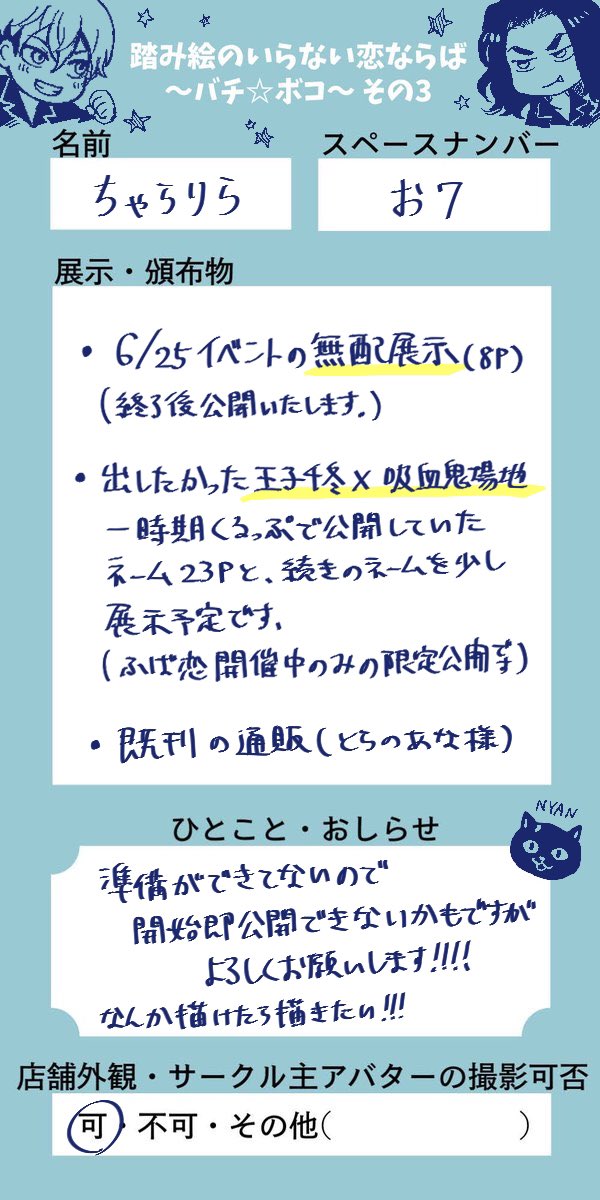 踏み絵のいらない恋ならば
～バチ☆ボコ～ その3
名前
スペースナンバー
ちゃらりら
お7
展示・頒布物
• 6/25イベントの無配展示(8P)
(終了後公開いたします。)
• 出したかった王子千冬×吸血鬼場地
一時期くるっぷで公開していた
ネーム23Pと、続きのネームを少し
展示予定です。
(ふば恋開催中のみの限定公開です)
• 既刊の通販(とらのあな様)
ひとこと・おしらせ
NYAN
準備ができてないので
開始即公開できないかもですが
よろしくお願いします!!!!
なんか描けたら描きたい!!!
店舗外観・サークル主アバターの撮影可否
可・不可・その他( )